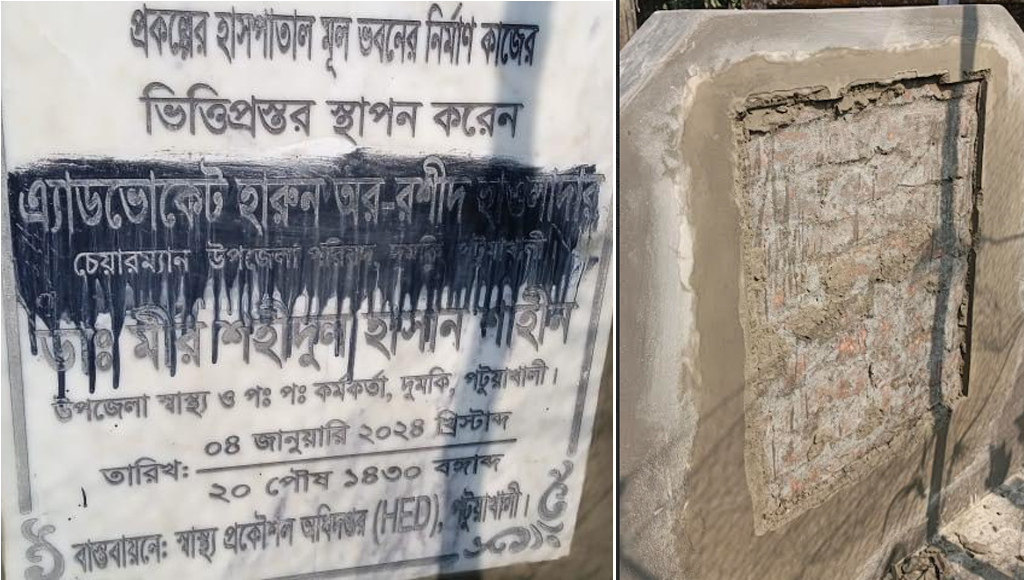 প্রকল্পের হাসপাতাল মূল ভবনের নির্মাণ কাজের
ভিত্তিপ্রস্তর স্থাপন করেন
এ্যাডভোকেট হারুন অর-রশীদ হাওলাদার
চেয়ারম্যান উপজেলা পরিষদ, দুমকি, পটুয়াখালী।
ডাঃ মীর শহীদুল হাসান শাহীন
উপজেলা স্বাস্থ্য ও পঃ পঃ কর্মকর্তা, দুমকি, পটুয়াখালী।
০৪ জানুয়ারি ২০২৪ খ্রিস্টাব্দ
তারিখ:
২০ পৌষ ১৪৩০ বঙ্গাব্দ
বাস্তবায়নে: স্বাস্থ্য প্রকৌশল অধিদপ্তর (HED), পটুয়াখালী।